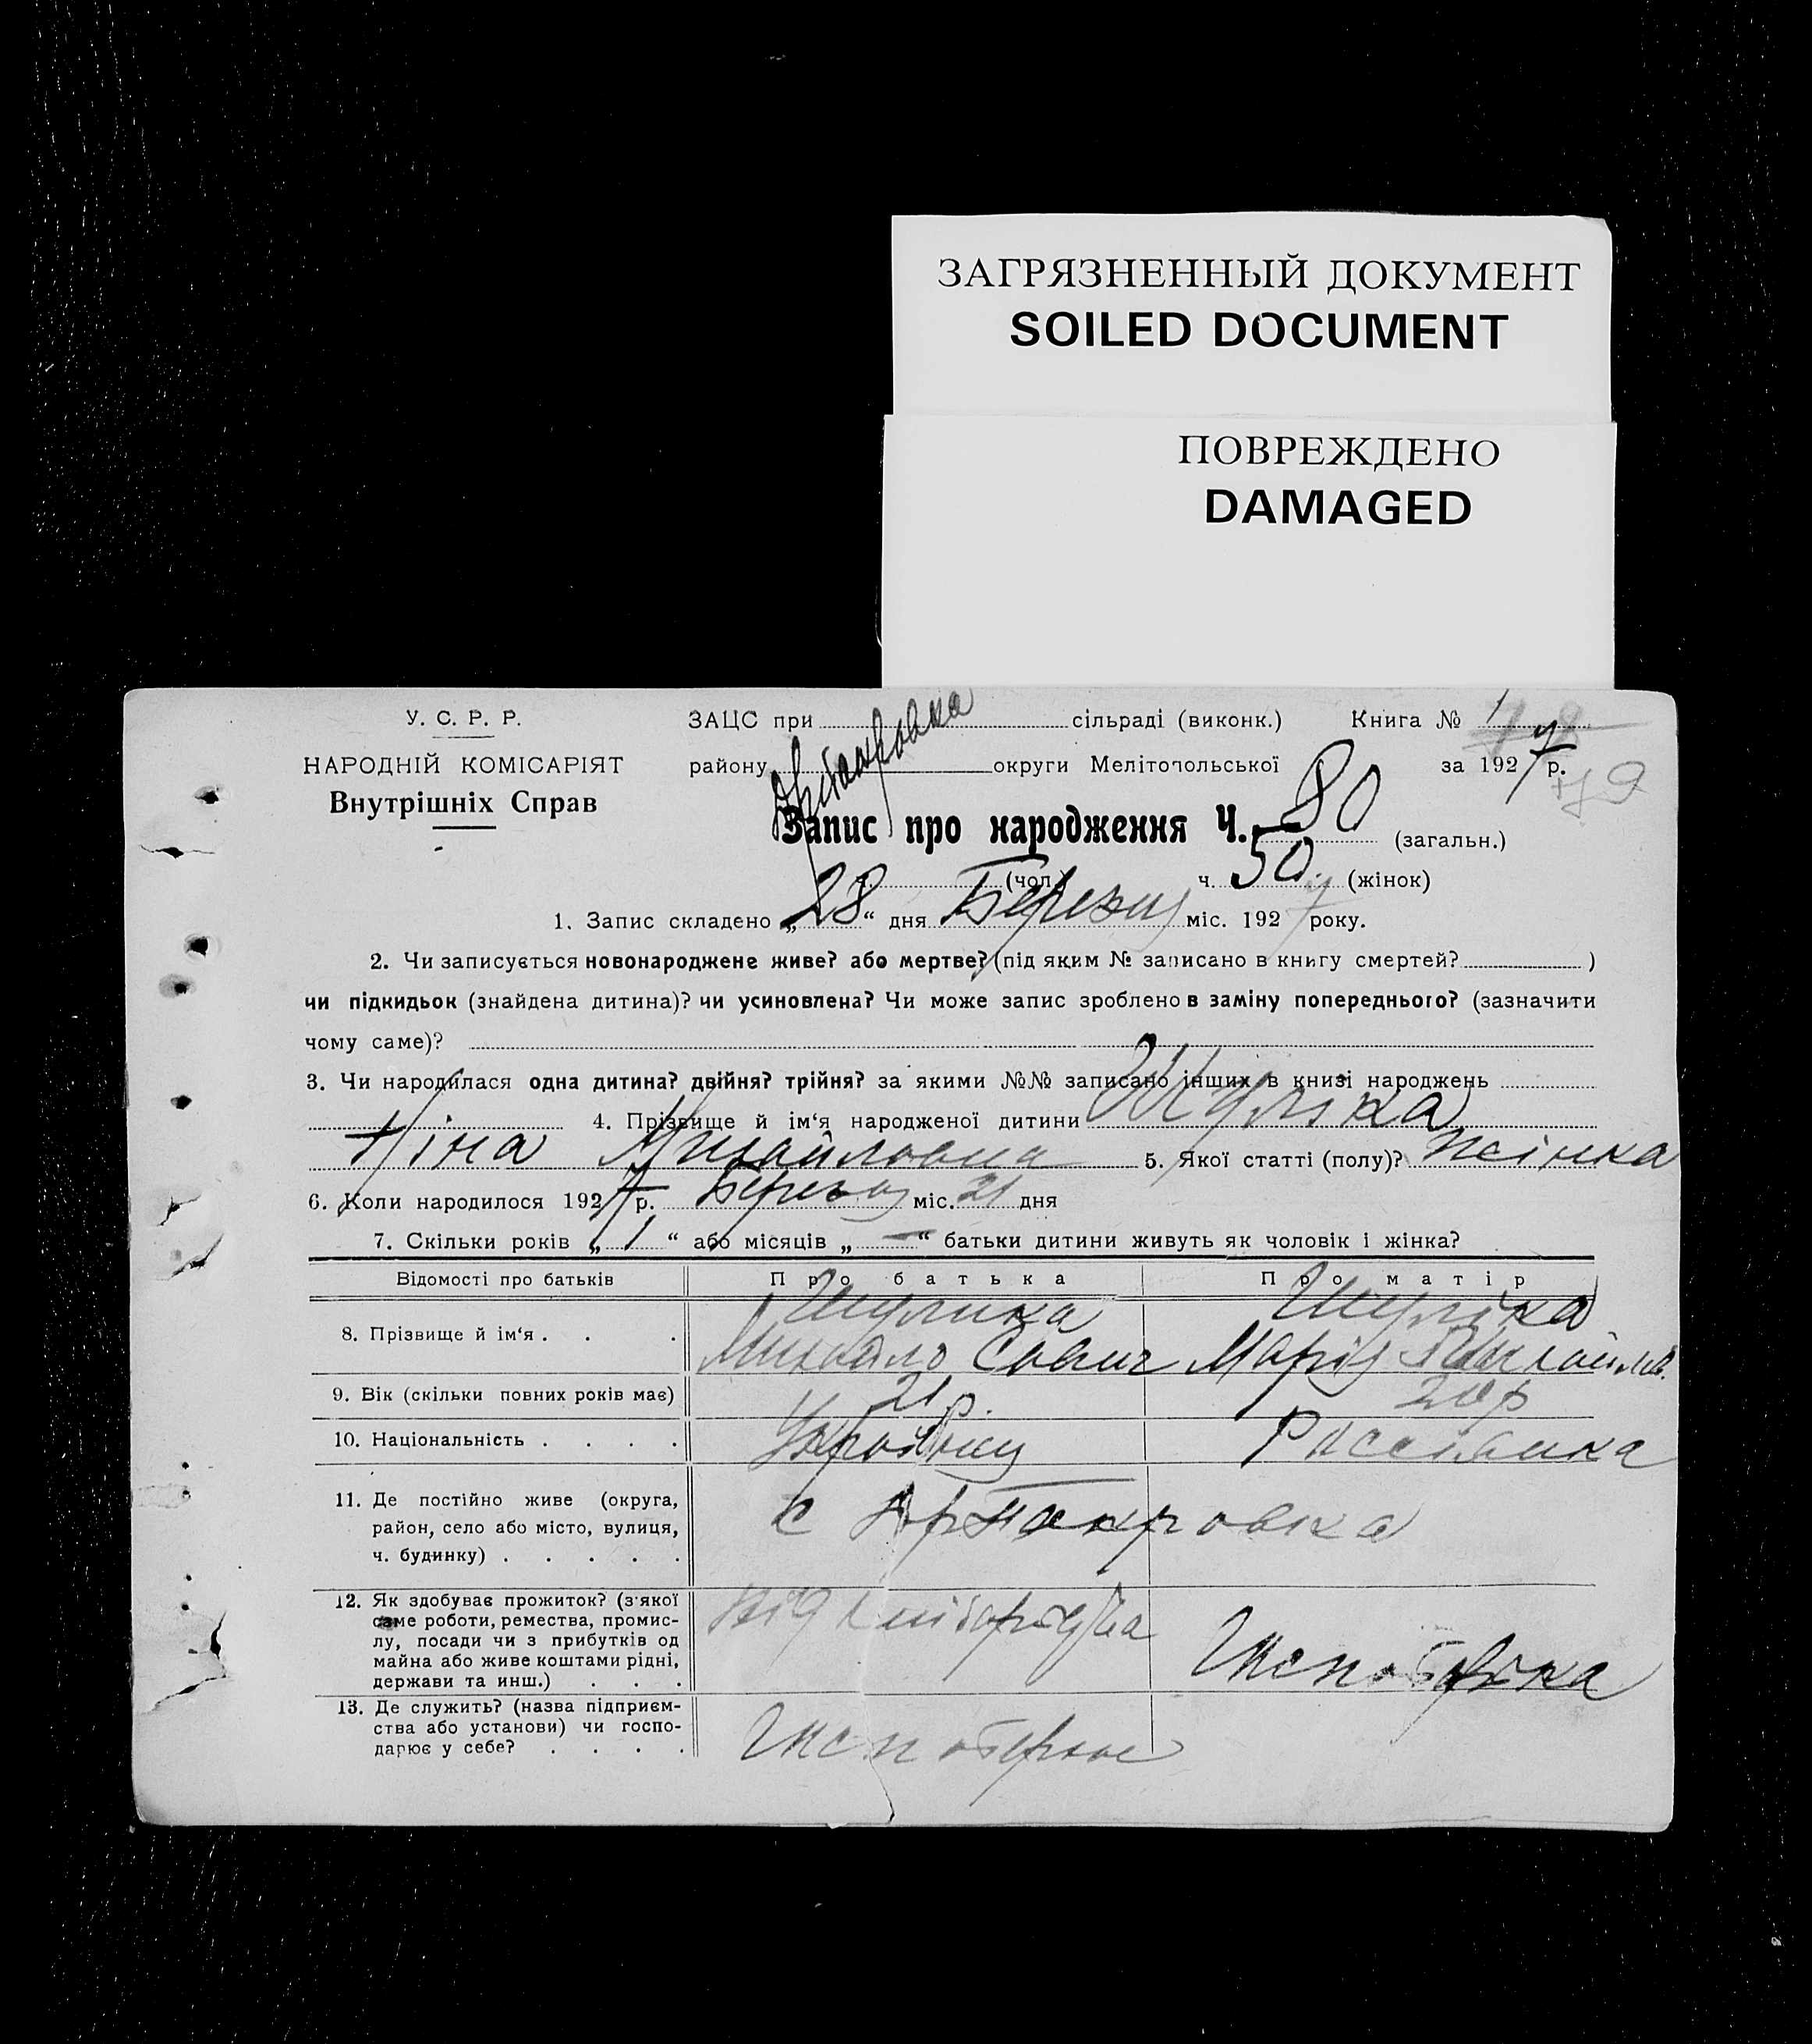 ЗАГРЯЗНЕННЫЙ ДОКУМЕНТ
SOILED DOCUMENT
ПОВРЕЖДЕНО
DAMAGED
У. С. Р. Р.
НАРОДНІЙ КОМІСАРІЯТ
Внутрішніх Справ
ЗАЦС при сільраді (виконк.) Книга № 1
району округи Мелітопольської за 1927 р.
Запис про народження Ч. 80 (загальн.)
(чол.) ч. 50 (жінок)
1. Запис складено „28“ дня Березня міс. 1927 року.
2. Чи записується новонароджене живе? або мертве? (під яким № записано в книгу смертей? )
чи підкидьок (знайдена дитина)? чи усиновлена? Чи може запис зроблено в заміну попереднього? (зазначити
чому саме)?
3. Чи народилася одна дитина? двійня? трійня? за якими №№ записано інших в книзі народжень
4. Прізвище й ім‘я народженої дитини Шуліка
Ніна Михайловна 5. Якої статті (полу)? жінка
6. Коли народилося 1927 р. Березня міс. 21 дня
7. Скільки років „1“ або місяців „—“ батьки дитини живуть як чоловік і жінка?
Відомості про батьків Про батька Про матір
8. Прізвище й ім‘я . . . Шулика Шуліка
Михайло Савич Марія
9. Вік (скільки повних років має) 21 р. 20 р
10. Національність . . . . Українец Россіянка
11. Де постійно живе (округа,
район, село або місто, вулиця,
ч. будинку) . . . . .
с
12. Як здобуває прожиток? (з‘якої
саме роботи, ремества, промис-
лу, посади чи з прибутків од
майна або живе коштами рідні,
держави та инш.) . . .
від
13. Де служить? (назва підприєм-
ства або установи) чи госпо-
дарює у себе? . . . .